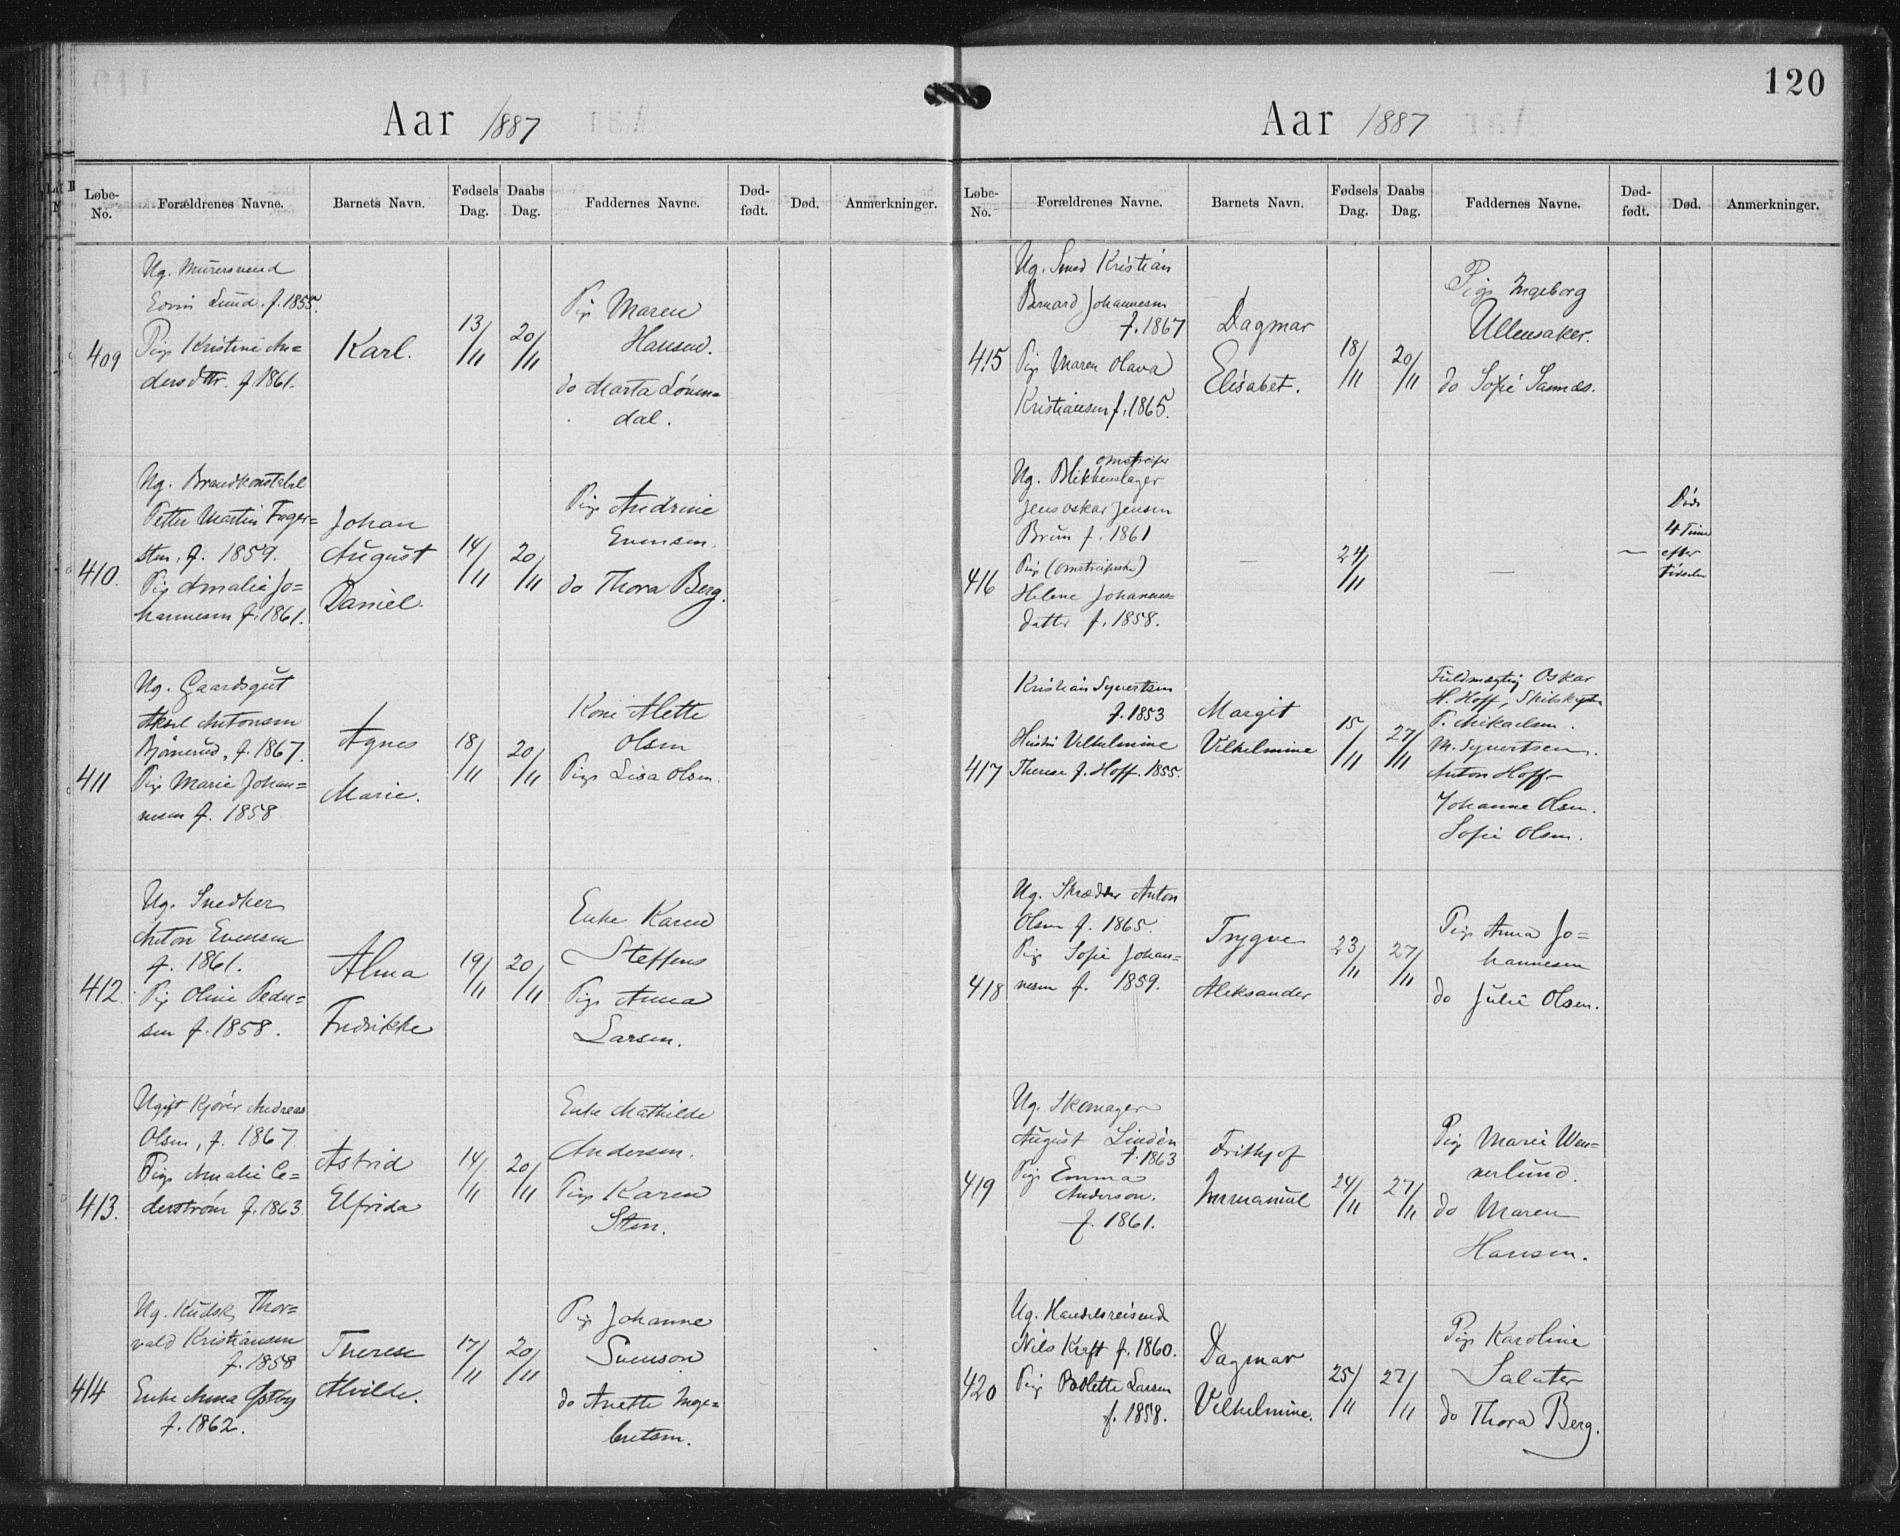 120
Aar 1887
Løbe-No. Forældrenes Navne. Barnets Navn. Fødsels Dag. Daabs Dag. Faddernes Navne. Død-født. Død. Anmerkninger.
409
Ug. Murersvend
Edvin Lund. f. 1855.
Pige Kristine An=
dersdttr. f. 1861.
Karl.
13/11
20/11
Pige Maren
Hansen.
do Marta Löven=
dal.
410.
Ug. Brandkonstabel
Petter Martin Fager=
sten, f. 1859.
Pige Amalie Jo=
hannesen f. 1861.
Johan
August
Daniel.
14/11
20/11
Pige Andrine
Evensen.
do Thora Berg.
411
Ug. Gaardsgut
Aksel Antonsen
Bjørnerud, f. 1867.
Pige Marie Johan=
nesen f. 1858
Agnes
Marie.
18/11
20/11
Kone Alette
Olsen
Pige Lisa Olsen.
412.
Ug. Snedker
Anton Evensen
f. 1861.
Pige Oline Peder=
sen f. 1858.
Alma
Fredrikke
19/11
20/11
Enke Karen
Steffens
Pige Anna
Larsen.
413.
Ugift Kjører Andreas
Olsen, f. 1867.
Pige Amalie Ce=
derström f. 1863
Astrid
Elfrida
14/11
20/11
Enke Mathilde
Andersen.
Pige Karen
Sten.
414
Ug. Kudsk Thor=
vald Kristiansen
f. 1858
Enke Anna Østby
f. 1862.
Therese
Alvilde.
17/11
20/11
Pige Johanne
Svenson
do Anette Inge=
bretsen.
Aar 1887
Løbe-No. Forældrenes Navne. Barnets Navn. Fødsels Dag. Daabs Dag. Faddernes Navne. Død-født. Død. Anmerkninger.
415
Ug. Smed Kristian
Bernard Johannesen
f. 1867
Pige Maren Olava
Kristiansen f. 1865.
Dagmar
Elisabet.
18/11
20/11
Pige Ingeborg
Ullensaker.
do Sofie Sannes.
416
Ug. Blikkenslager
Jens Oskar Jensen
Brun f. 1861
Pige
Helene Johannes=
datter f. 1858.
—
24/11
—
—
Døde
4 Timer
efter
Fødselen
417
Kristian Syvertsen
f. 1853
Hustru Vilhelmine
Therese f. Hoff. 1855.
Margit
Vilhelmine
15/11
27/11
Fuldmægtig Oskar
H. Hoff,
P. Mikaelsen.
M. Syvertsen.
Anton Hoff
Johanne Olsen.
Sofie Olsen.
418
Ug. Skrædder Anton
Olsen f. 1865.
Pige Sofie Johan=
nesen f. 1859.
Trygve
Aleksander
23/11
27/11
Pige Anna Jo=
hannesen
do Julie Olsen.
419
Ug. Skomager
August Lindén
f. 1863
Pige Emma
Anderson.
f. 1861.
Frithjof
Immanuel
24/11
27/11
Pige Marie Wen=
nerlund.
do Maren
Hansen.
420
Ug. Handelsreisend
Nils Kraft f. 1860.
Pige Bolette Larsen
f. 1858.
Dagmar
Vilhelmine.
25/11
27/11
Pige Karoline
Salater
do Thora Berg.